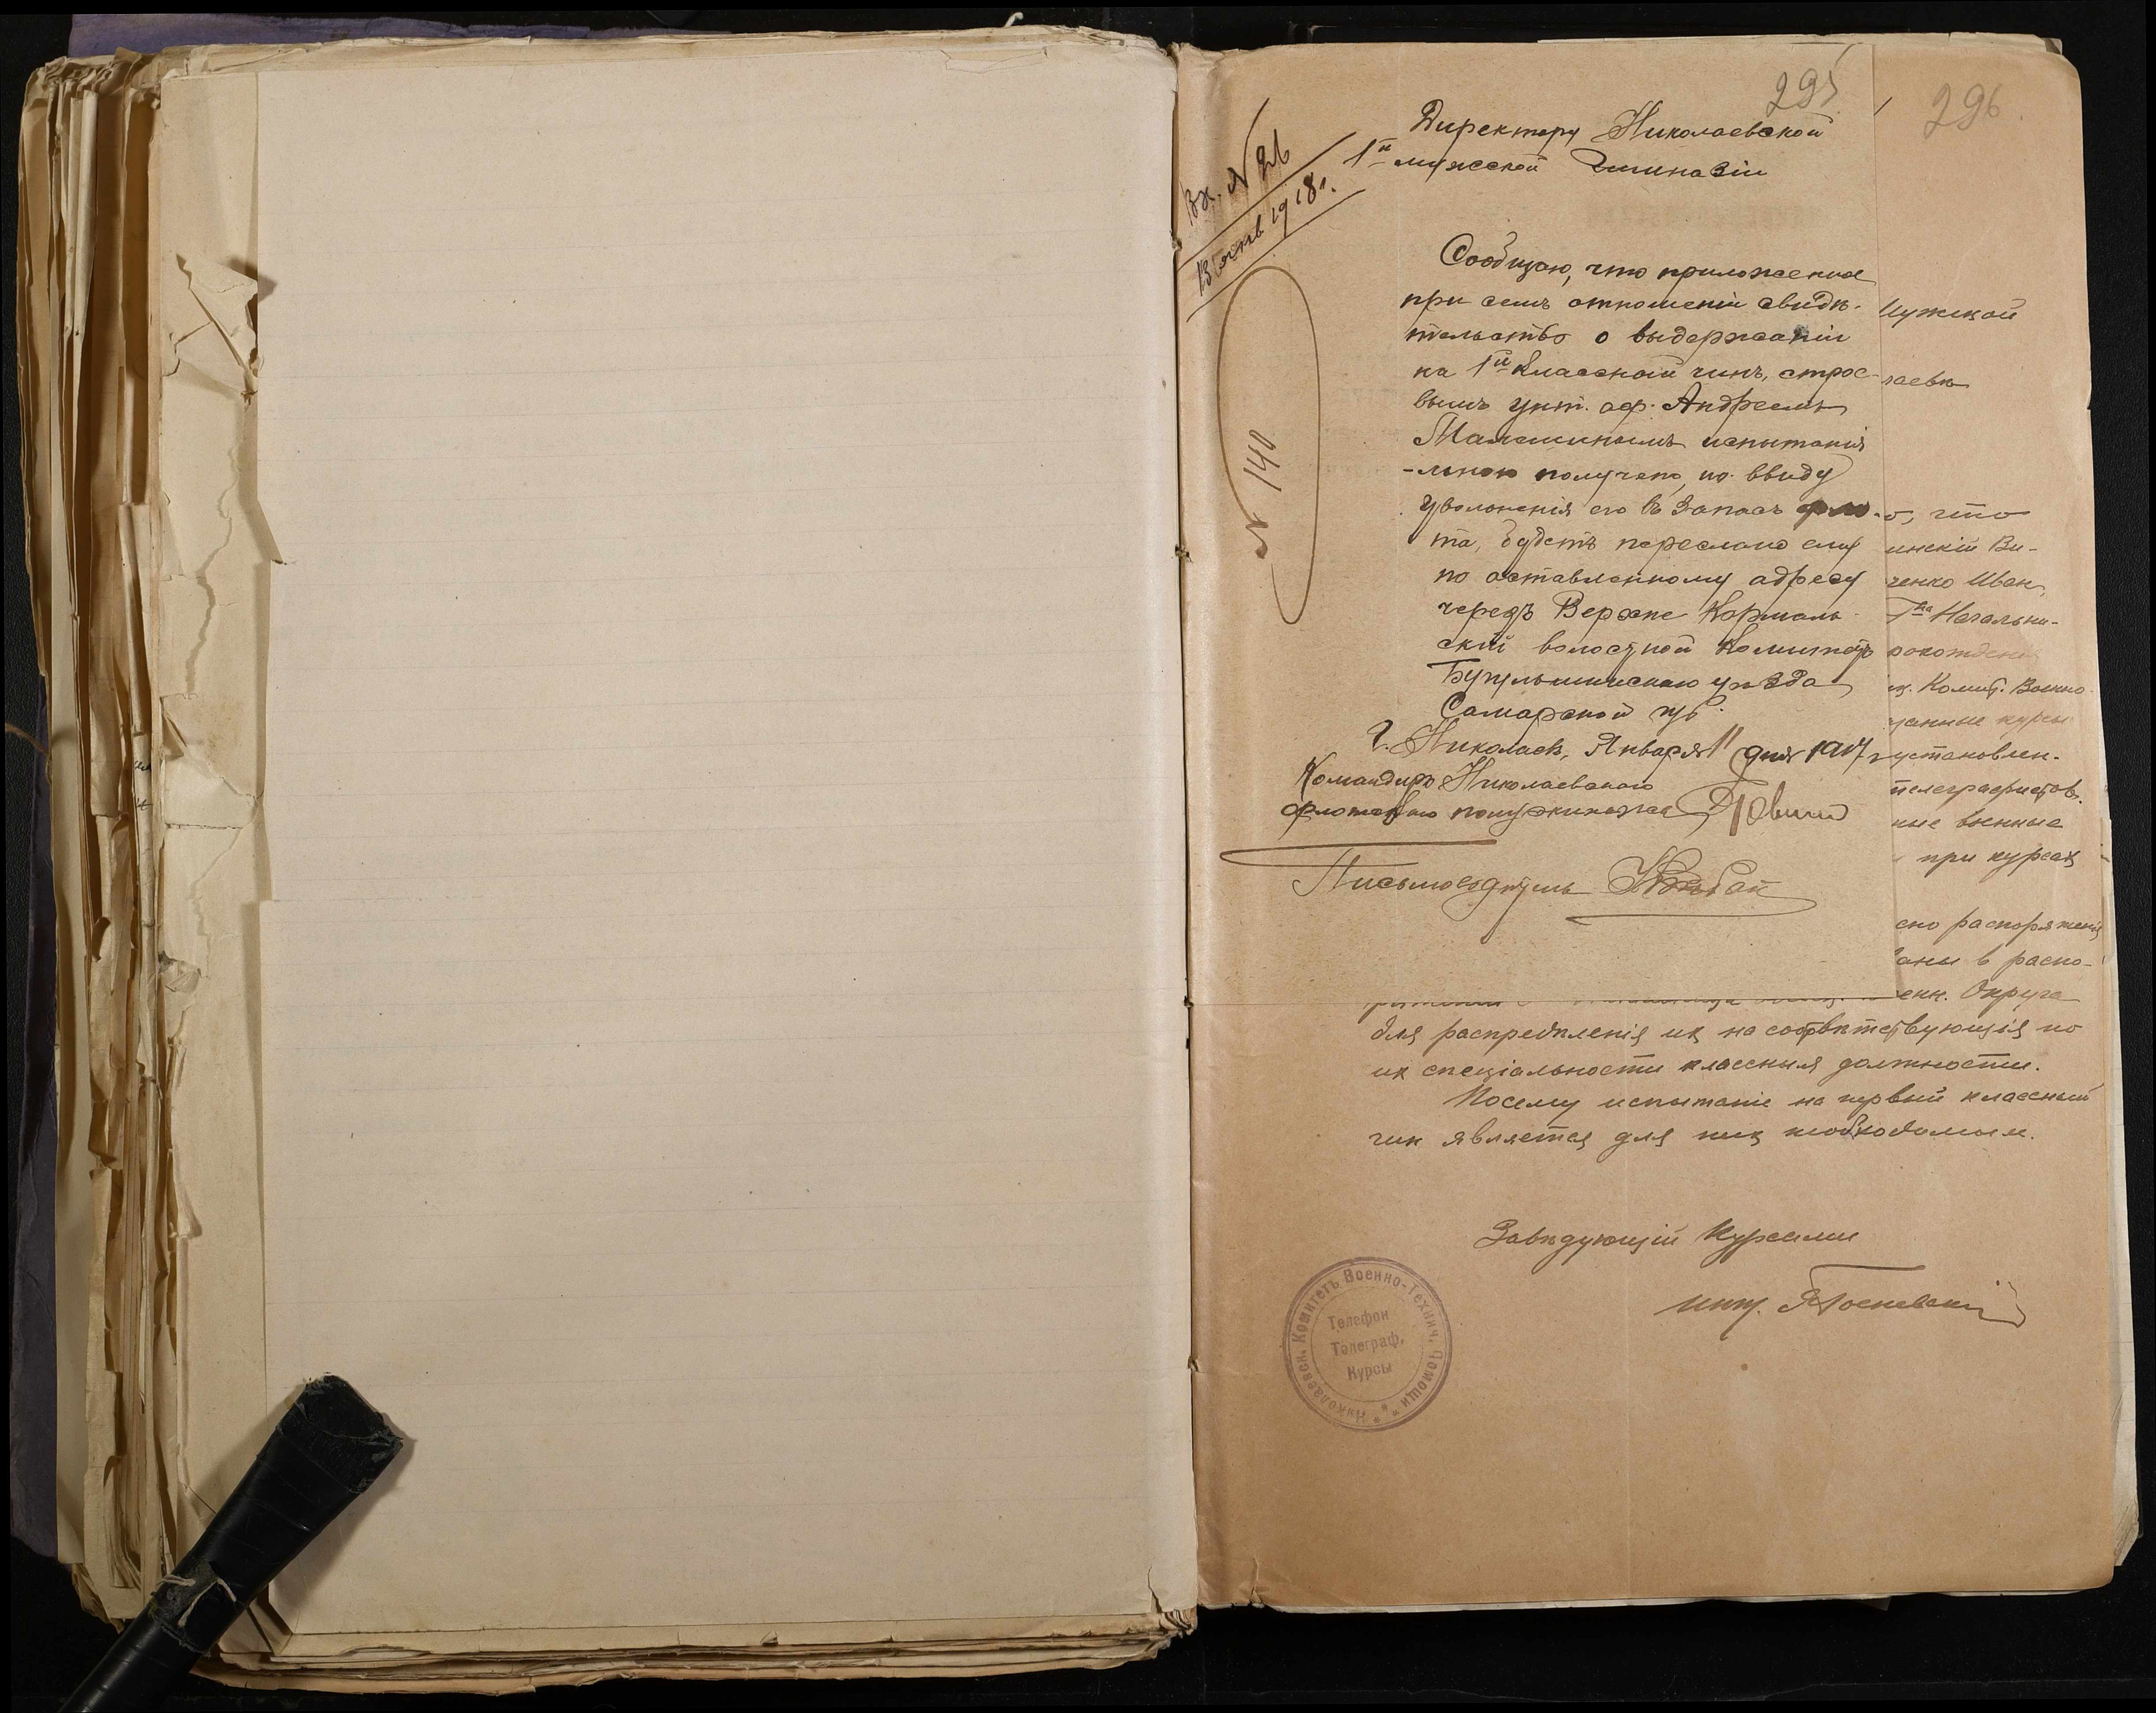 295
296
Вх. № 26
13 янв 1918 г.
№ 140
Директору Николаевской
1й мужской Гимназіи
Сообщаю, что приложенное
при семъ отношеніи свидѣ-
тельство о выдержаніи
на 1й классный чинъ, строе-
вымъ унт. оф. Андреемъ
испытанія
мною получено, но ввиду
увольненія его въ запасъ фло-
та, будетъ переслано ему
по оставленному адресу
черезъ Верхне Кармаль-
скій волостной Комитетъ
Бугульминскаго уѣзда
Самарской губ.
г. Николаевъ, Января 11 дня
Командиръ Николаевскаго
флотскаго полуэкипажа
Письмоводитель
мужской
лаевѣ
о, что
инскій Ви-
ченко Иван,
Начальни-
. Комит. Военно
ванные курсы
установлен-
телеграфистов.
ные военные
при курсах
ено распоряженіе
ваны в распо-
енн. Округа
для распредѣленія их на соотвѣтствующія по
их спеціальности классныя должности.
Посему испытаніе на первый классный
чин является для них необходимым.
Завѣдующій Курсами
инж.
Николаевск. Комитетъ Военно-Технич. Помощи
Телефон
Телеграф.
Курсы